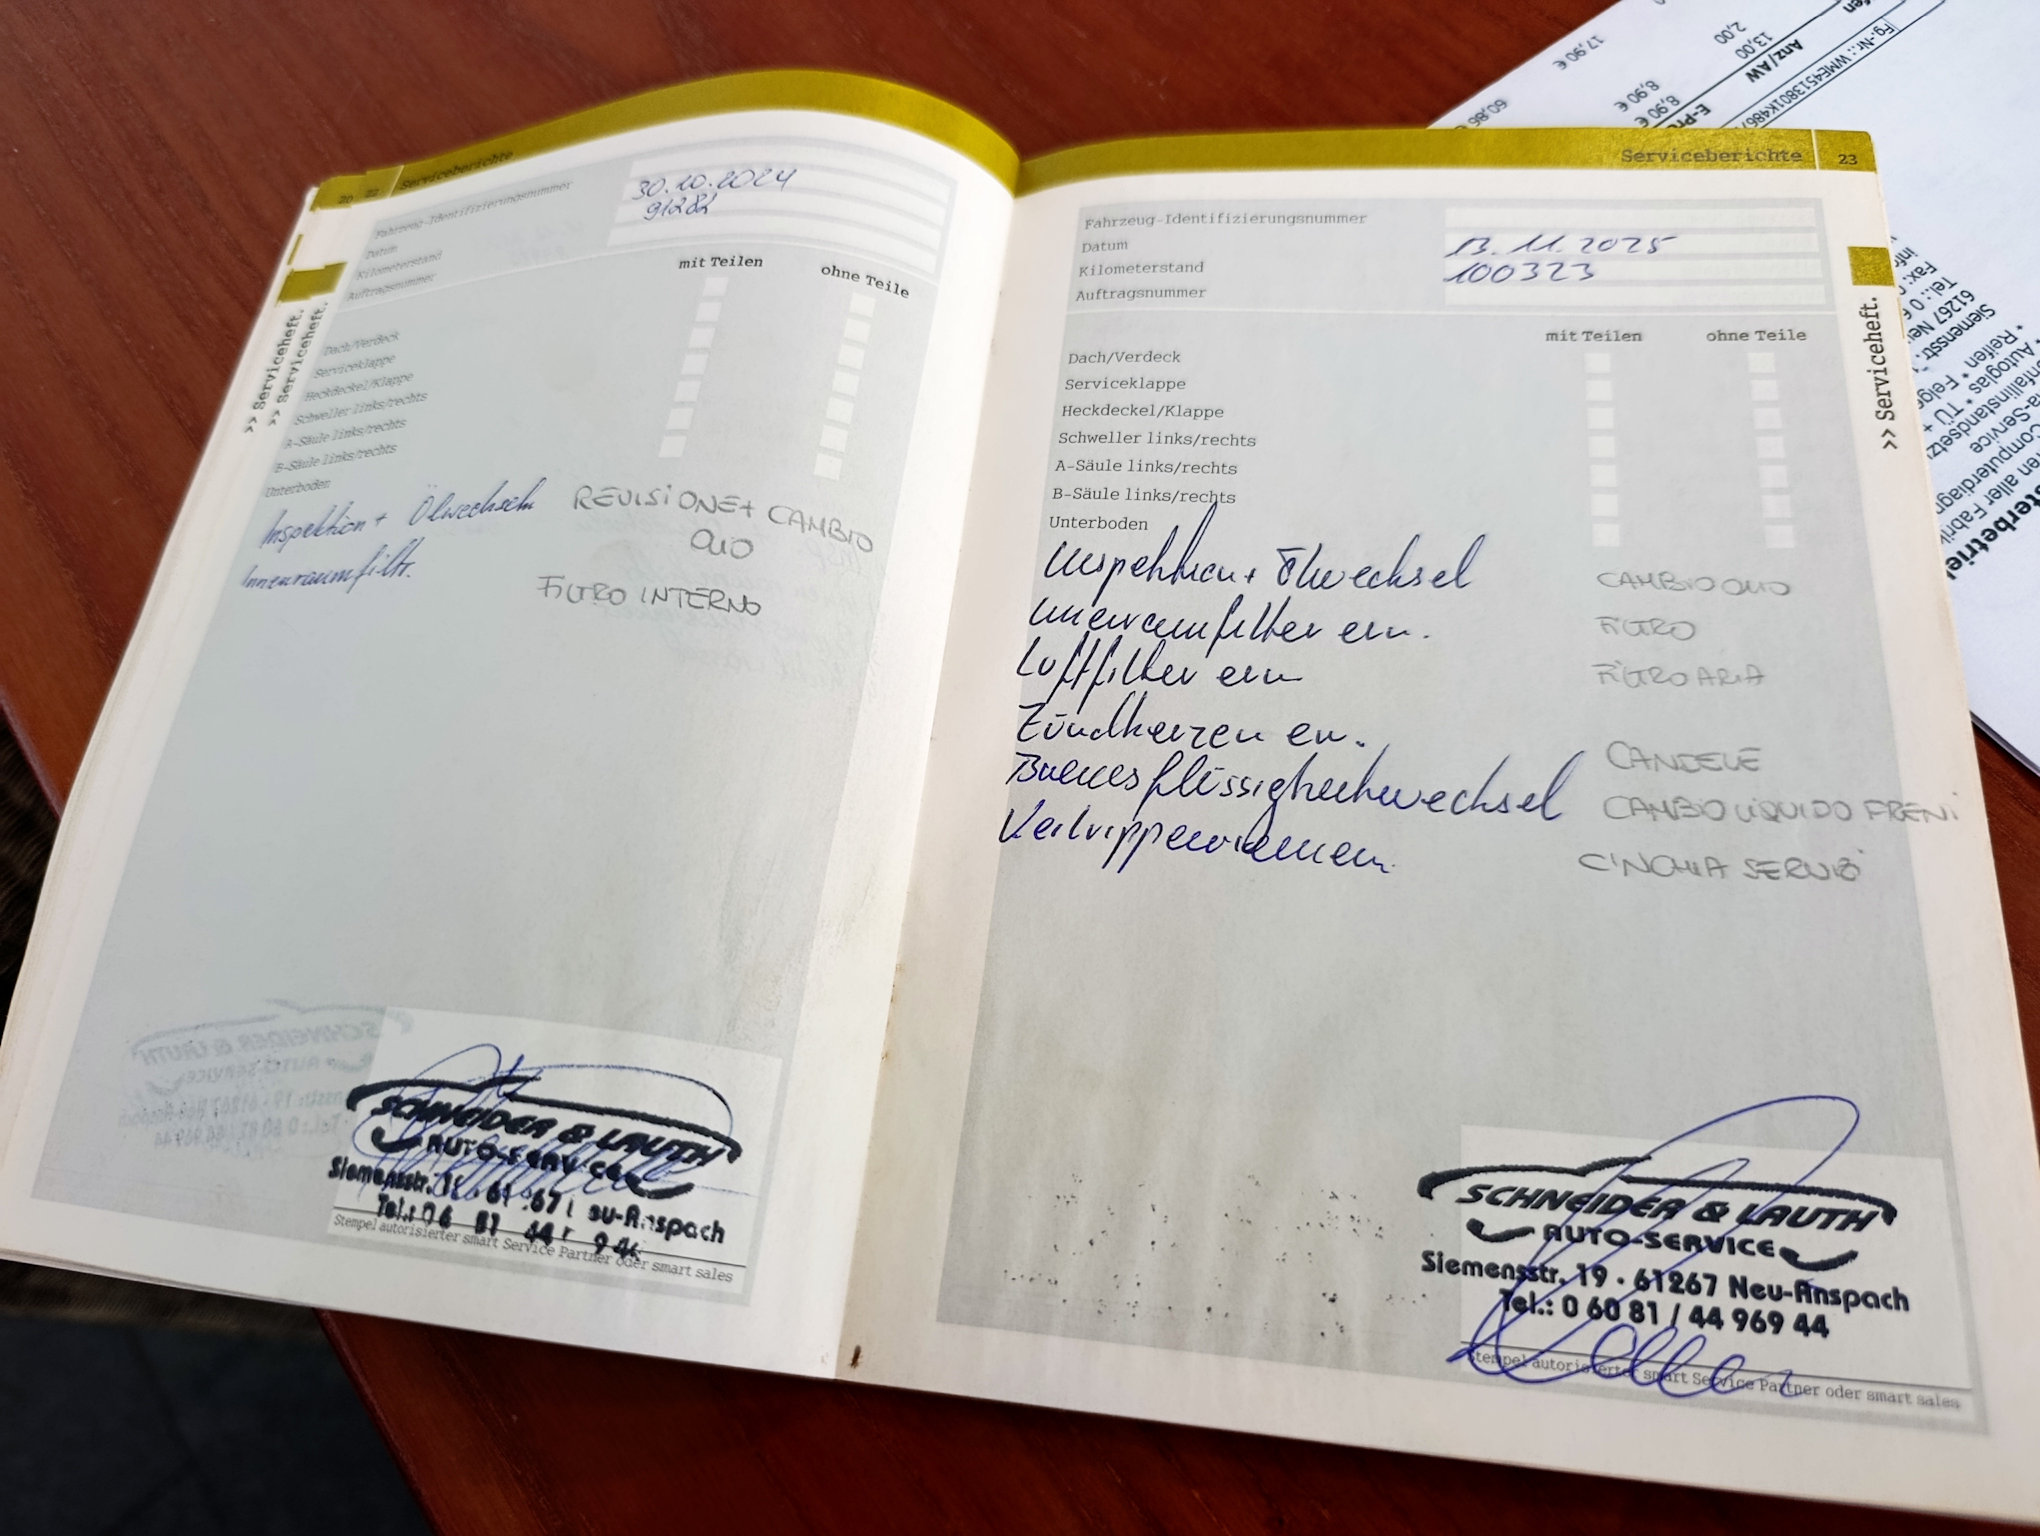 20 22 Serviceberichte
Fahrzeug-Identifizierungsnummer
Datum 30.10.2024
Kilometerstand 91282
Auftragsnummer
mit Teilen ohne Teile
Dach/Verdeck
Serviceklappe
Heckdeckel/Klappe
Schweller links/rechts
A-Säule links/rechts
B-Säule links/rechts
Unterboden
Inspektion + Ölwechseln REVISIONE + CAMBIO
OLIO
Innenraumfiltr. FILTRO INTERNO
>> Serviceheft.
>> Serviceheft.
SCHNEIDER & LAUTH
AUTO-SERVICE
Siemensstr. 19 · 61267 Neu-Anspach
Tel.: 0 60 81 / 44 969 44
Stempel autorisierter smart Service Partner oder smart sales
Serviceberichte 23
Fahrzeug-Identifizierungsnummer
Datum 13.11.2025
Kilometerstand 100323
Auftragsnummer
mit Teilen ohne Teile
Dach/Verdeck
Serviceklappe
Heckdeckel/Klappe
Schweller links/rechts
A-Säule links/rechts
B-Säule links/rechts
Unterboden
Inspektion + Ölwechsel CAMBIO OLIO
Innenraumfilter ern. FILTRO
Luftfilter ern FILTRO ARIA
Zündkerzen ern. CANDELE
Bremsflüssigkeitwechsel CAMBIO LIQUIDO FRENI
Keilrippenriemen. CINGHIA SERVIZI
>> Serviceheft.
SCHNEIDER & LAUTH
AUTO-SERVICE
Siemensstr. 19 · 61267 Neu-Anspach
Tel.: 0 60 81 / 44 969 44
Stempel autorisierter smart Service Partner oder smart sales
Anz/AW
13,00
2,00
8,90 €
8,90 €
17,90 €
60,86
Siemensstr.
61267
Tel.: 0 6
Fax: